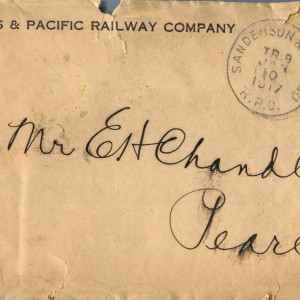 S & PACIFIC RAILWAY COMPANY
SANDERSON &
TR. 9
10
1917
R.P.O.
Mr E H Chandl
Pear